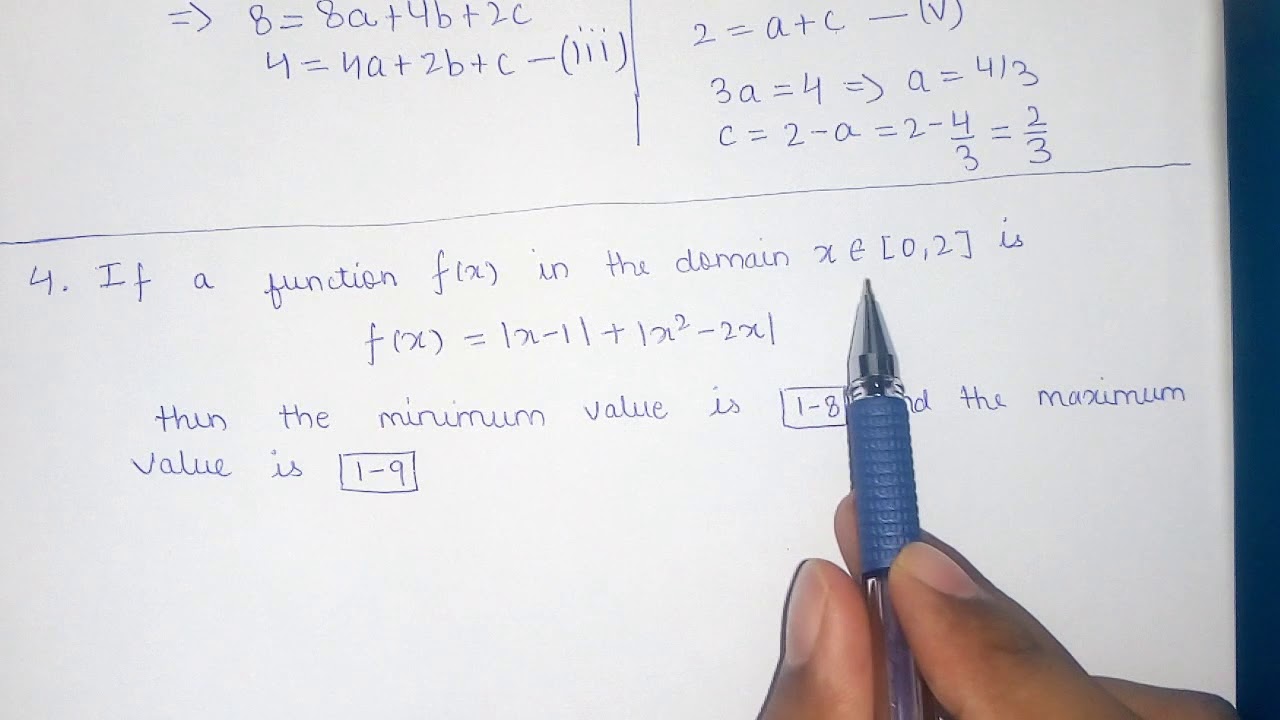 => 8 = 8a + 4b + 2c
4 = 4a + 2b + c — (iii)
2 = a + c — (V)
3a = 4 => a = 4/3
c = 2 - a = 2 - 4/3 = 2/3
4. If a function f(x) in the domain x ∈ [0,2] is
f(x) = |x-1| + |x² - 2x|
then the minimum value is 1-8 and the maximum
value is 1-9